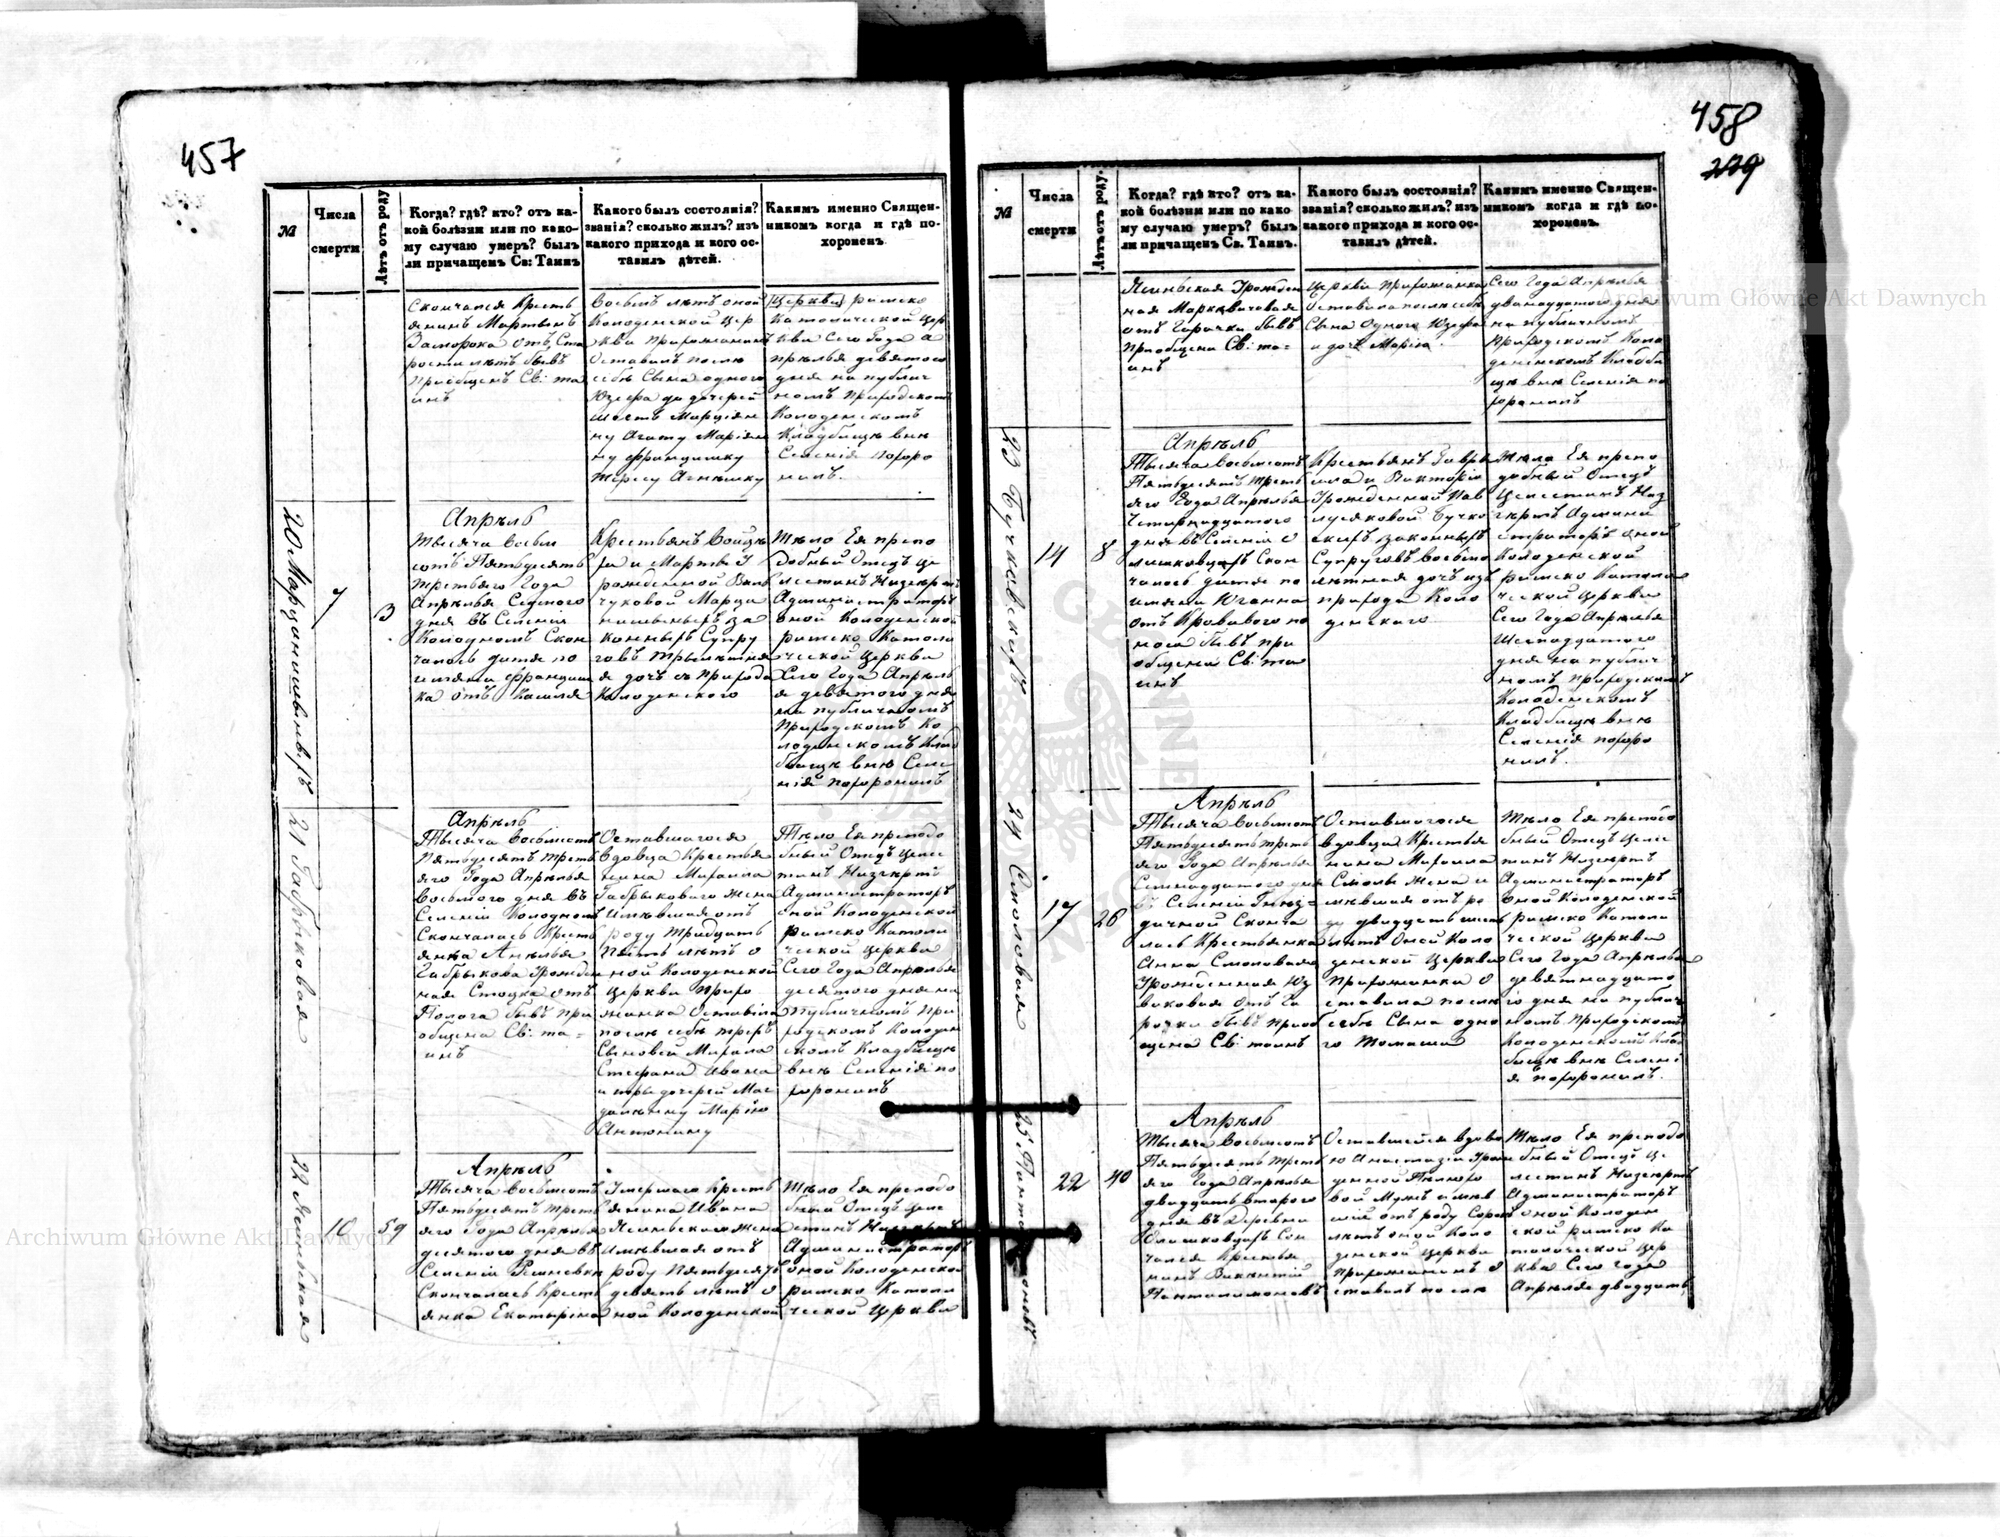 457
№
Числа
смерти
Лѣтъ отъ роду
Когда? гдѣ? кто? отъ ка-
кой болѣзни или по како-
му случаю умеръ? былъ
ли причащенъ Св: Таинъ
Какого былъ состоянія?
званія? сколько жилъ? изъ
какого прихода и кого ос-
тавилъ дѣтей.
Какимъ именно Священ-
никомъ когда и гдѣ по-
хороненъ
Скончался Кресть
янинъ Мартынъ
Заморока отъ Ста
рости лѣтъ бывъ
Пріобщенъ Св: та
инъ
Восемъ лѣтъ оной
Колоденской Цер
кви прихожанинъ
Оставилъ после
себѣ Сына одного
Юзефа да дочерей
шесть Марціян
ну Агату Маріян
ну Францишку
Терезу Агнешку
Церкви римско
Католической Цер
кви Сего Года а
прѣлья девятого
дня на публич
номъ приходском
Колоденскомъ
Кладбищѣ внѣ
Селенія похоро
нилъ.
20 Марцинишиныхъ
7
3
Апрѣль
Тысяча Восьм
сотъ Пятьдесятъ
третьяго Года
Апрѣлья Седмого
дня въ Селеніи
Колодномъ Скон
чалось дитя по
имяни Францишка
отъ Кашля
Крестьянъ Войцѣ
ха и Марты У
рожденной
чуковой Марци
нишиныхъ за
конныхъ Супру
говъ трилѣтня
я дочъ съ прихода
Колоденского
Тѣло Ея препо
добный Отецъ Це
лестинъ Низгертъ
Администраторъ
оной Колоденской
римско Католи
ческой Церкви
Сего Года Апрѣль
я девятого дня
на публичномъ
Приходскомъ Ко
лоденскомъ Клад
бищѣ внѣ Селе
нія похоронилъ
21 Габрыковая
Апрѣль
Тысяча Восьмсотъ
Пятьдесятъ треть
яго Года Апрѣлья
Восьмого дня въ
Селеніи Колодномъ
Скончалась Кресть
янка Анѣлья
Габрыкова Урожден
ная Стоцка отъ
Полога бывъ при
общена Св: та=
инъ
Оставшагося
вдовца Крестья
нина Михаила
Габрыкового жена
Имѣвшая отъ
роду тридцать
Пѣть лѣтъ о
ной Колоденской
Церкви прихо
жанка Оставила
после себѣ трехъ
Сыновей Михала
Стефана Ивана
и тры дочерей Маг
далѣнну Марію
Антонину
Тѣло Ея преподо
бный Отецъ Целес
тинъ Низгертъ
Администраторъ
оной Колоденской
римско Католи
ческой Церкви
Сего Года Апрѣлья
десятого дня на
Публичномъ при
ходскомъ Колоден
скомъ Кладбищѣ
внѣ Селенія по
хоронилъ
22 Ясиньская
10
59
Апрѣль
Тысяча Восьмсотъ
Пятьдесятъ треть
яго Года Апрѣлья
десятого дня въ
Селеніи Решневки
Скончалась Кресть
янка Екатырина
Умершаго Кресть
янина Ивана
Ясиньского жена
Имѣвшая отъ
роду Пятьдесятъ
девять лѣтъ о
ной Колоденской
Тѣло Ея преподо
бный Отецъ Целе
стинъ Низгертъ
Администраторъ
оной Колоденской
римско Католи
ческой Церкви
458
209
№
Числа
смерти
Лѣтъ отъ роду.
Когда? гдѣ? кто? отъ ка-
кой болѣзни или по како-
му случаю умеръ? былъ
ли причащенъ Св. Таинъ.
Какого былъ состоянія?
званія? сколько жилъ? изъ
какого прихода и кого ос-
тавилъ дѣтей.
Какимъ именно Священ-
никомъ когда и гдѣ по-
хороненъ.
Ясиньская Урожден
ная Марквичовая
отъ Горячки бывъ
Приобщена Св: та-
инъ
Церкви прихожанка
Оставила после себѣ
Сына Одного Юзефа
и дочъ Марію.
Сего Года Апрѣлья
двенадцатого дня
на публичномъ
Приходскомъ Коло
денскомъ Кладби
щѣ внѣ Селенія по
хоронилъ
23 Бучковскихъ
14
8
Апрѣль
Тысяча Восьмсотъ
Пятьдесятъ треть
яго Года Апрѣлья
Четырнадцатого
дня въ Селеніи О
лишковцахъ Скон
чалось дитя по
имяни Юганна
отъ Кровавого по
носа бывъ при
общена Св: та
инъ
Крестьянъ Гаври
ила и Викторіи
Урожденной Пав
люсяковой Бучко
скихъ законныхъ
Супруговъ Восьмо
лѣтняя дочъ изъ
прихода Коло
денского
Тѣло Ея препо
добный Отецъ
Целестинъ Низ
гертъ Админи
страторъ оной
Колоденской
римско Католи
ческой Церкви
Сего Года Апрѣлья
Шеснадцатого
дня на публич
номъ приходскомъ
Колоденскомъ
Кладбищѣ внѣ
Селенія похоро
нилъ.
24 Смоловая
17
26
Апрѣль
Тысяча Восьмсотъ
Пятьдесятъ треть
яго Года Апрѣлья
Семнадцатого дня
въ Селеніи Гнѣз-
дичной Сконча
лась Крестьянка
Анна Смоловая
Урожденная
отъ Го
рячки бывъ приоб
щена Св: таинъ
Оставшагося
вдовца Крестья
нина Михаила
Смолы жена и
мѣвшая отъ ро
ду двадцать шесть
лѣтъ Оной Коло
денской Церкви
Прихожанка О
ставила после
себѣ Сына одно
го Томаша
Тѣло Ея преподо
бный Отецъ Целес
тинъ Низгертъ
Администраторъ
оной Колоденской
римско Католи
ческой Церкви
Сего Года Апрѣлья
девятнадцато
го дня на публич
номъ приходскомъ
Колоденскомъ Клад
бищѣ внѣ Селені
я похоронилъ.
22
40
Апрѣль
Тысяча Восьмсотъ
Пятьдесятъ треть
яго Года Апрѣлья
двадцать второго
дня въ деревни
Олишковцахъ Скон
чался Крестья
нинъ Викентій
Пантолимоновъ
Оставшейся вдово
ю Анастазіи Урож
денной
вой Мужъ имѣв
шій отъ роду Сорокъ
лѣтъ оной Коло
денской Церкви
прихожанинъ О
ставилъ после
Тѣло Ея преподо
бный Отецъ Це
лестинъ Низгертъ
Администраторъ
оной Колоден
ской римско Ка
толической Цер
кви Сего года
Апрѣлья двадцать
Archiwum Główne Akt Dawnych
Archiwum Główne Akt Dawnych